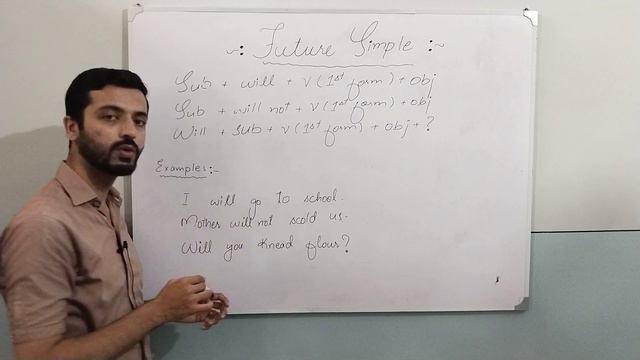 ~: Future Simple :~
Sub + will + V (1st form) + obj
Sub + will not + V (1st form) + obj
Will + sub + V (1st form) + obj + ?
Examples:-
I will go to school.
Mother will not scold us.
Will you knead flour?